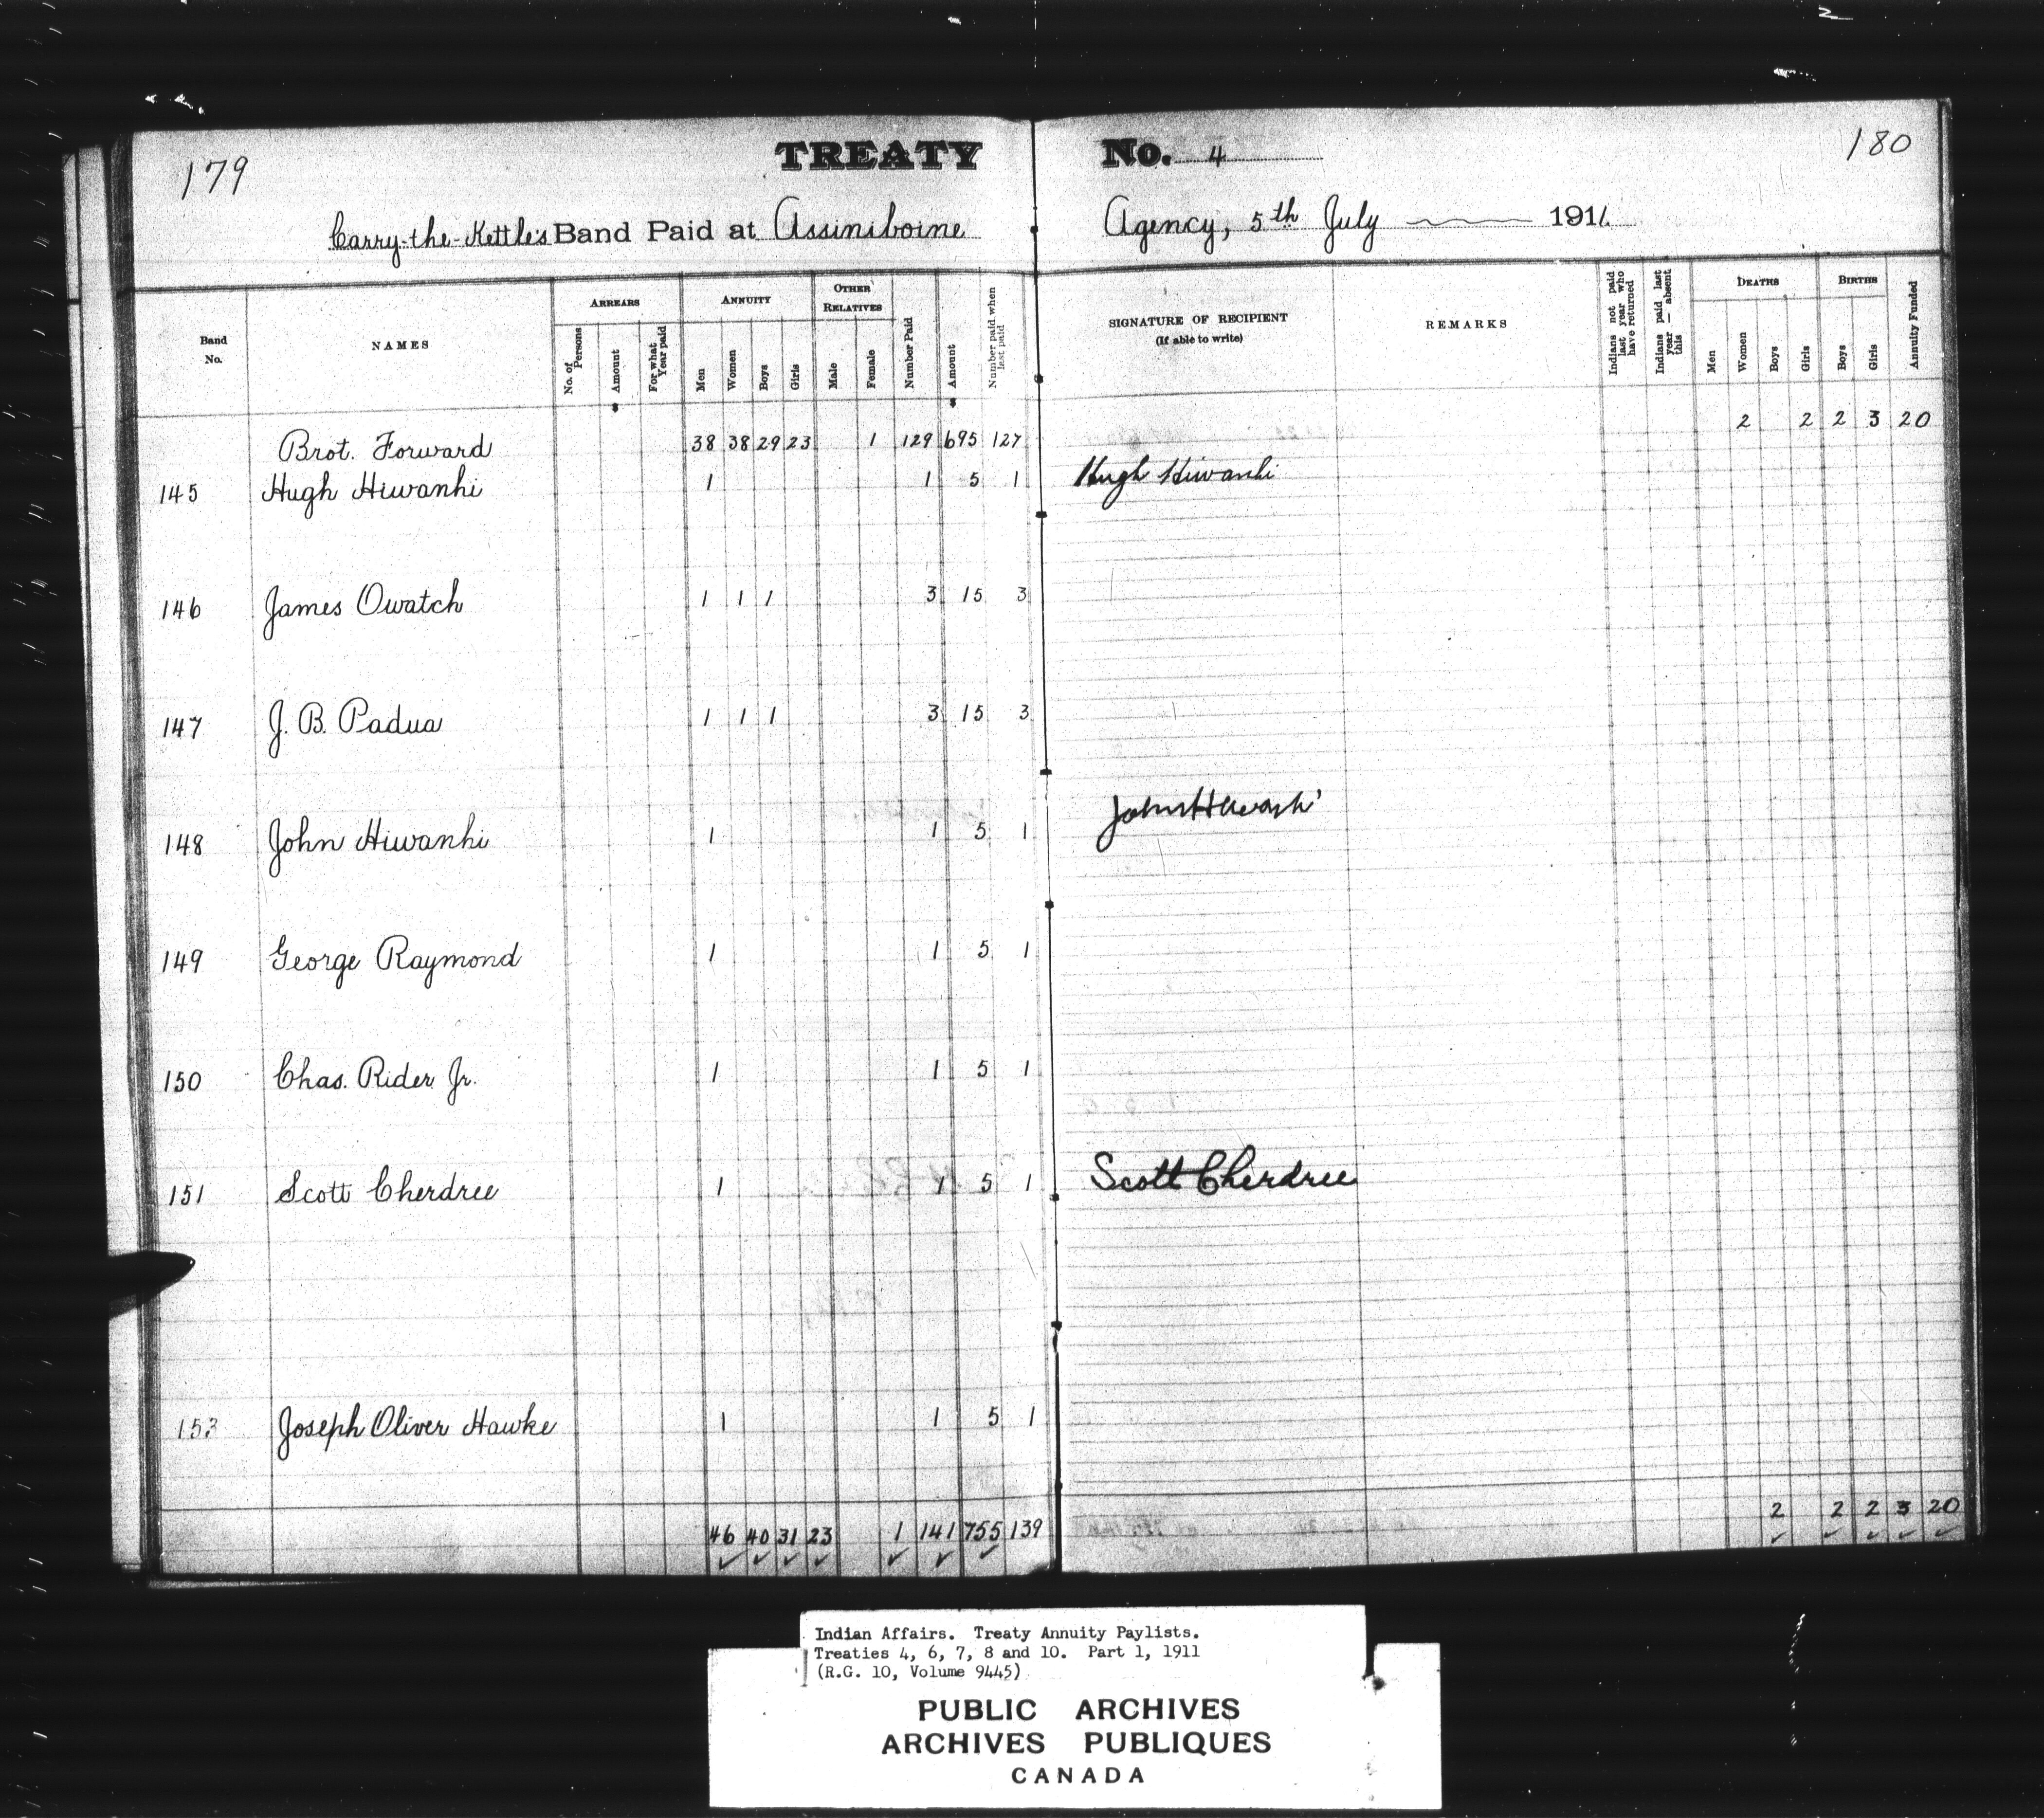 179
TREATY No. 4
180
Carry-the-Kettle's Band Paid at Assiniboine Agency, 5th July 1911.
Band No.
NAMES
ARREARS
No. of Persons
Amount
For what Year paid
ANNUITY
Men
Women
Boys
Girls
OTHER RELATIVES
Male
Female
Number Paid
Amount
Number paid when last paid
SIGNATURE OF RECIPIENT
(If able to write)
REMARKS
Indians not paid last year who have returned
Indians paid last year — absent this
DEATHS
Men
Women
Boys
Girls
BIRTHS
Boys
Girls
Annuity Funded
Brot. Forward 38 38 29 23 1 129 695 127 2 2 2 3 20
145 Hugh Hiwanhi 1 1 5 1 Hugh Hiwanhi
146 James Owatch 1 1 1 3 15 3
147 J. B. Padua 1 1 1 3 15 3
148 John Hiwanhi 1 1 5 1 John
149 George Raymond 1 1 5 1
150 Chas. Rider Jr. 1 1 5 1
151 Scott Cherdree 1 1 5 1 Scott Cherdree
153 Joseph Oliver Hawke 1 1 5 1
46 40 31 23 1 141 755 139 2 2 2 3 20
Indian Affairs. Treaty Annuity Paylists.
Treaties 4, 6, 7, 8 and 10. Part 1, 1911
(R.G. 10, Volume 9445)
PUBLIC ARCHIVES
ARCHIVES PUBLIQUES
CANADA